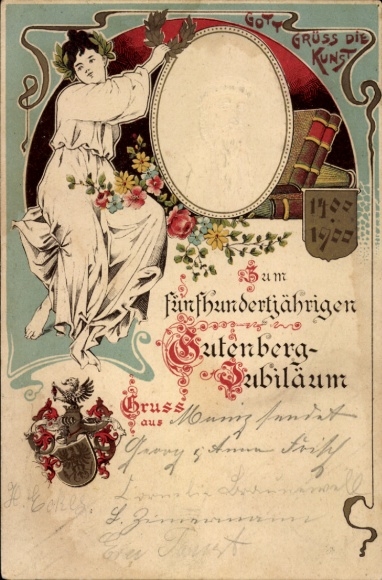 GOTT GRÜSS DIE
KUNST
1400
1900
Zum
fünfhundertjährigen
Gutenberg-
Jubiläum
Gruss
aus Mainz sendet
Georg & Anna Frisch
L. Zimmermann